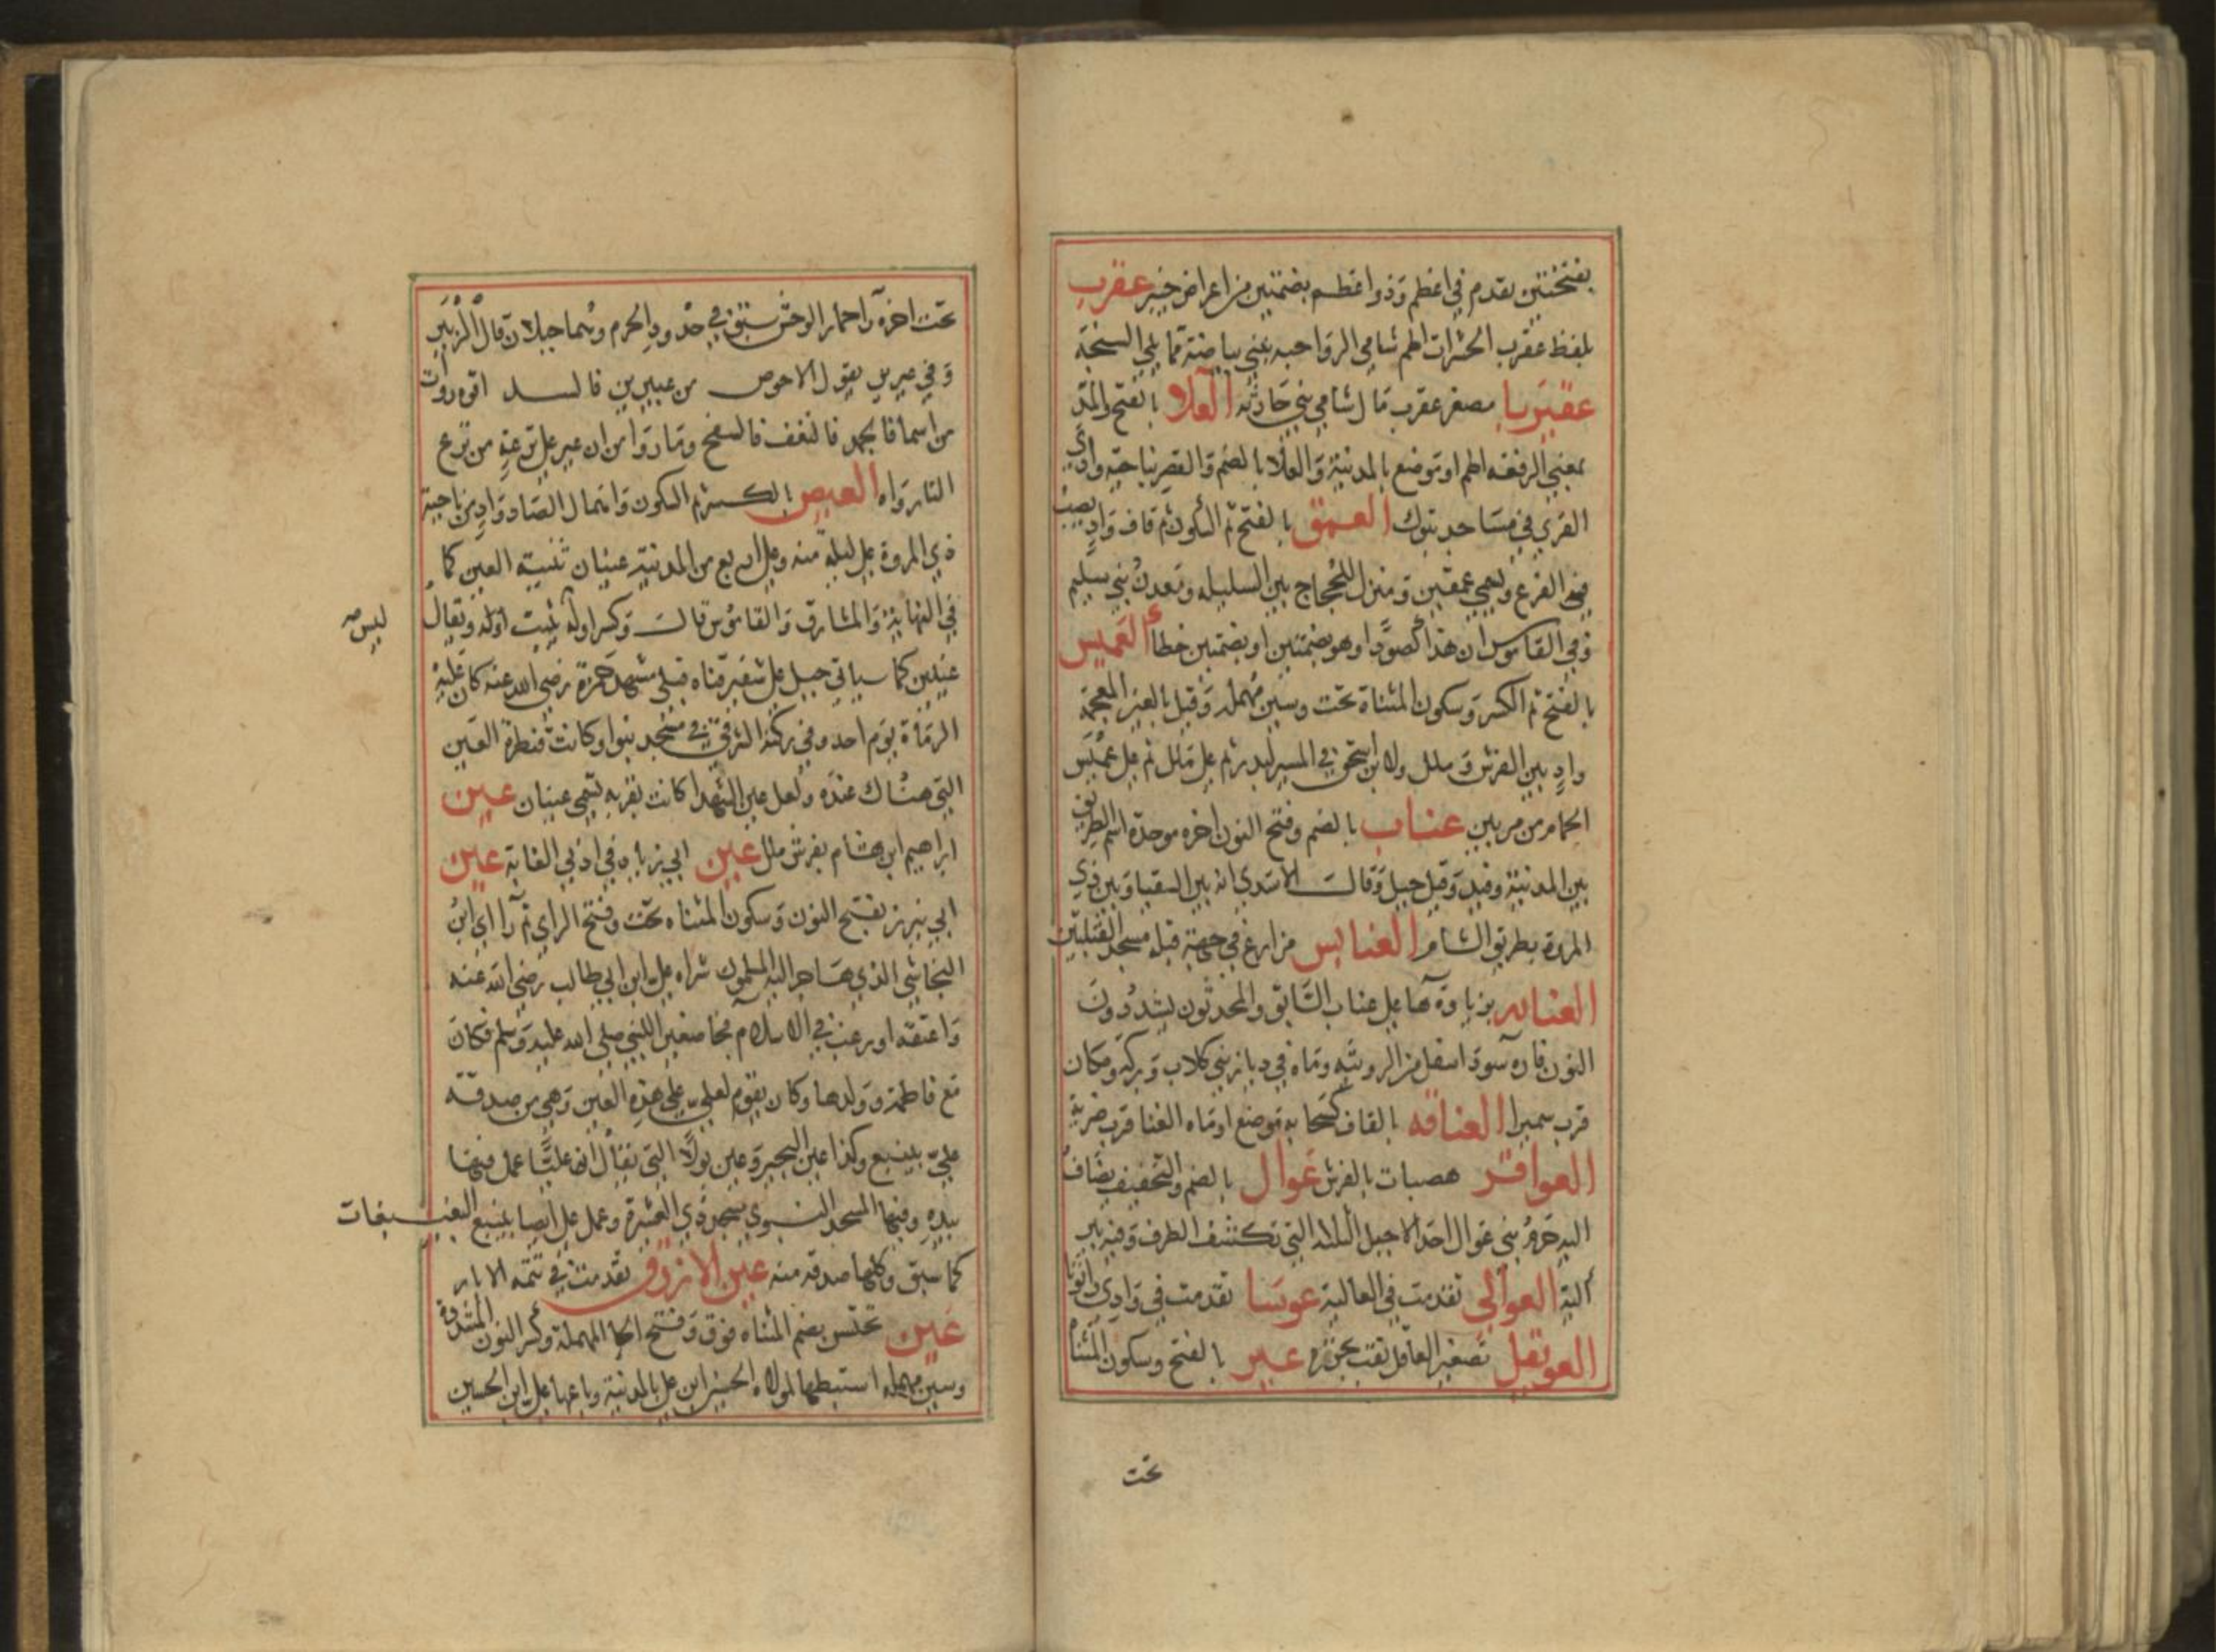 بفتحتين تقدم في اعظم وذو اعظم بضمتين من اعراض خيبر عقرب
بلفظ عقرب الحشرات اطم شامي الرواحبه بني بياضة مما يلي السبخة
عقيربا مصغر عقرب مال شامي بني حارثه العلا بالفتح والمد
بمعني الرفعه اطم او موضع بالمدينة والعلا بالضم والقصر ناحية وادي
القري في مساجد تبوك العمق بالفتح ثم السكون ثم قاف واد يصب
في الفرع ويسمي عمقين ومنزل للحجاج بين السليله ومعدن بني سليم
وفي القاموس ان هذا كصرد او هو بضمتين او بضمتين خطأ العميس
بالفتح ثم الكسر وسكون المثناة تحت وسين مهملة وقيل بالغين المعجمة
واد بين الفرش وملل ولابن اسحق في المسير لبدر ثم علي ملل ثم علي عميس
الحمام من مريين عناب بالضم وفتح النون اخره موحدة اسم الطريق
بين المدينة وفيد وقيل جبل وقال الاسدي انه بين السقيا وبين ذي
المروة بطريق الشام العنابس مزارع في جهة قبلة مسجد القبلتين
العنابه بزيادة ها علي عناب السابق والمحدثون يشددون
النون قارة سودا اسفل من الرويثه وماء في ديار بني كلاب وبركة ومكان
قرب سميرا العناقه بالقاف كسحابه موضع او ماء الغنا قرب ضرية
العواقر هضبات بالفرش عوال بالضم والتخفيف يضاف
اليه حرم بني عوال احد الاجبل الثلاثة التي تكتنف الطرف وفيه بير
ألية العوالي تقدمت في العالية عوسا تقدمت في وادي رانونا
العويقل تصغير العاقل نقب بحزرة عير بالفتح وسكون المثناة
تحت
تحت اخره را حمار الوحش سبق في حدود الحرم وهما جبلان قال الزبير
وفي عيرين يقول الاحوص من عيرين فالسد اقوه روأت
من اسما فالجمد فالنغف فالسفح وما روا من ان عير علي ترعة من ترع
النار رواه العيص بالكسر ثم السكون واهمال الصاد واد من ناحية
ذي المروة علي ليلة منه وعلي اربع من المدينة عينان تثنية العين كما
في النهاية والمشارق والقاموس قالت وكسر اوله ليثبت اوله ويقال
ليس صح
عينين كما سياتي جبل علي شفير قناه قبلي مشهد حمزة رضي الله عنه كان عليه
الرماة يوم احد وفي ركنه الشرقي في مسجد نبوي وكانت قنطرة العين
التي هناك عنده ولعل عين الشهدا كانت بقربه تسمي عينان عين
ابراهيم ابن هشام بفرش ملل عين ابي زياد في ادني الغابة عين
ابي نيزر بفتح النون وسكون المثناه تحت وفتح الزاي ثم را ابي ابن
النجاشي الذي هاجر اليه المسلمون شراه علي ابن ابي طالب رضي الله عنه
واعتقه او رغب في الاسلام فجا صغيرا للنبي صلي الله عليه وسلم فكان
مع فاطمة وولدها وكان يقوم لعلي علي هذه العين وهي من صدقه
علي بينبع وكذا عين البحير وعين بولا التي يقال ان عليا عمل فيها
بيده وفيها المسجد النبوي مسجد ذي العشيرة وعمل علي ايضا بينبع البغيبغات
كما سبق وكلها صدقه منه عين الازرق تقدمت في تتمة الابار
عين تحنس بضم المثناه فوق وفتح الحا المهملة وكسر النون المشددة
وسين مهملة استنبطها لمولاه الحسين ابن علي بالمدينة وباعها علي ابن الحسين